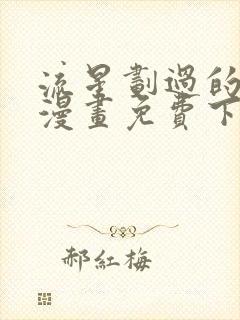 流星劃過的
漫畫免費下
郝紅梅